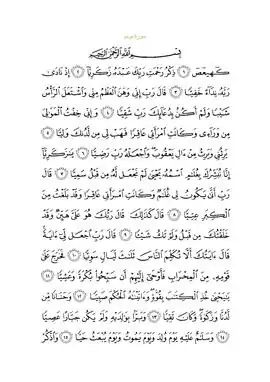 سورة مريم
بِسْمِ ٱللَّهِ ٱلرَّحْمَٰنِ ٱلرَّحِيمِ
كٓهيعٓصٓ ١ ذِكْرُ رَحْمَتِ رَبِّكَ عَبْدَهُۥ زَكَرِيَّآ ٢ إِذْ نَادَىٰ
رَبَّهُۥ نِدَآءً خَفِيًّا ٣ قَالَ رَبِّ إِنِّى وَهَنَ ٱلْعَظْمُ مِنِّى وَٱشْتَعَلَ ٱلرَّأْسُ
شَيْبًا وَلَمْ أَكُنۢ بِدُعَآئِكَ رَبِّ شَقِيًّا ٤ وَإِنِّى خِفْتُ ٱلْمَوَٰلِىَ
مِن وَرَآءِى وَكَانَتِ ٱمْرَأَتِى عَاقِرًا فَهَبْ لِى مِن لَّدُنكَ وَلِيًّا ٥
يَرِثُنِى وَيَرِثُ مِنْ ءَالِ يَعْقُوبَ وَٱجْعَلْهُ رَبِّ رَضِيًّا ٦ يَٰزَكَرِيَّآ
إِنَّا نُبَشِّرُكَ بِغُلَٰمٍ ٱسْمُهُۥ يَحْيَىٰ لَمْ نَجْعَل لَّهُۥ مِن قَبْلُ سَمِيًّا ٧ قَالَ
رَبِّ أَنَّىٰ يَكُونُ لِى غُلَٰمٌ وَكَانَتِ ٱمْرَأَتِى عَاقِرًا وَقَدْ بَلَغْتُ مِنَ
ٱلْكِبَرِ عِتِيًّا ٨ قَالَ كَذَٰلِكَ قَالَ رَبُّكَ هُوَ عَلَىَّ هَيِّنٌ وَقَدْ
خَلَقْتُكَ مِن قَبْلُ وَلَمْ تَكُ شَيْـًٔا ٩ قَالَ رَبِّ ٱجْعَل لِّىٓ ءَايَةً
قَالَ ءَايَتُكَ أَلَّا تُكَلِّمَ ٱلنَّاسَ ثَلَٰثَ لَيَالٍ سَوِيًّا ١٠ فَخَرَجَ عَلَىٰ
قَوْمِهِۦ مِنَ ٱلْمِحْرَابِ فَأَوْحَىٰٓ إِلَيْهِمْ أَن سَبِّحُوا۟ بُكْرَةً وَعَشِيًّا ١١
يَٰيَحْيَىٰ خُذِ ٱلْكِتَٰبَ بِقُوَّةٍ وَءَاتَيْنَٰهُ ٱلْحُكْمَ صَبِيًّا ١٢ وَحَنَانًا مِّن
لَّدُنَّا وَزَكَوٰةً وَكَانَ تَقِيًّا ١٣ وَبَرًّۢا بِوَٰلِدَيْهِ وَلَمْ يَكُن جَبَّارًا عَصِيًّا
١٤ وَسَلَٰمٌ عَلَيْهِ يَوْمَ وُلِدَ وَيَوْمَ يَمُوتُ وَيَوْمَ يُبْعَثُ حَيًّا ١٥ وَٱذْكُرْ